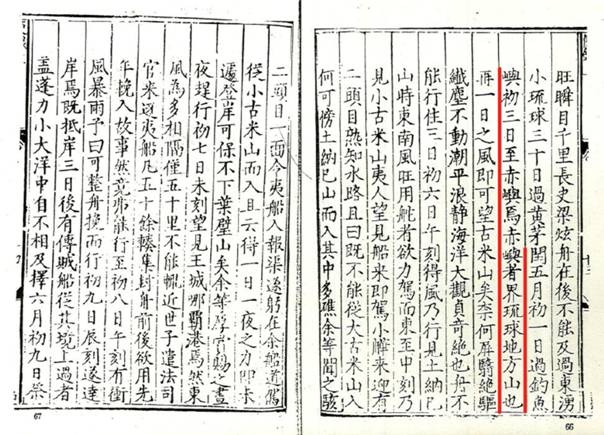 旺瞬目千里長史梁炫舟在後不能及過東湧
小琉球三十日過黃茅閏五月初一日過釣魚
嶼初三日至赤嶼焉赤嶼者界琉球地方山也
再一日之風即可望古米山矣奈何屏翳絕驅
纖塵不動潮平浪静海洋大觀真奇絕也舟不
能行住三日初六日午刻得風乃行見土納已
山時東南風旺用舵者欲力駕而東至申刻乃
見小古米山夷人望見船來即駕小艀來迎有
二頭目熟知水路且曰既不能從大古米山入
何可傍土納已山而入其中多礁余等聞之駭
66
二頭目一面令夷船入報渠遂躬在余船道駕
從小古米山而入且云得一日一夜之力即未
遽登岸可保不下葉壁山矣余等厚賞賜之晝
夜趕行初七日未刻望見王城那霸港焉然東
風為多相隔僅五十里不能輒近世子遣法司
官來迎夷船凡五十餘艘集封舟前後欲用先
年挽入故事然竟弗能行至初八日午刻有衝
風暴雨予曰可整舟挽而行初九日辰刻遂達
岸焉既抵岸三日後有傳賊船從其境上過者
蓋蓬力小大洋中自不相及擇六月初九日祭
67